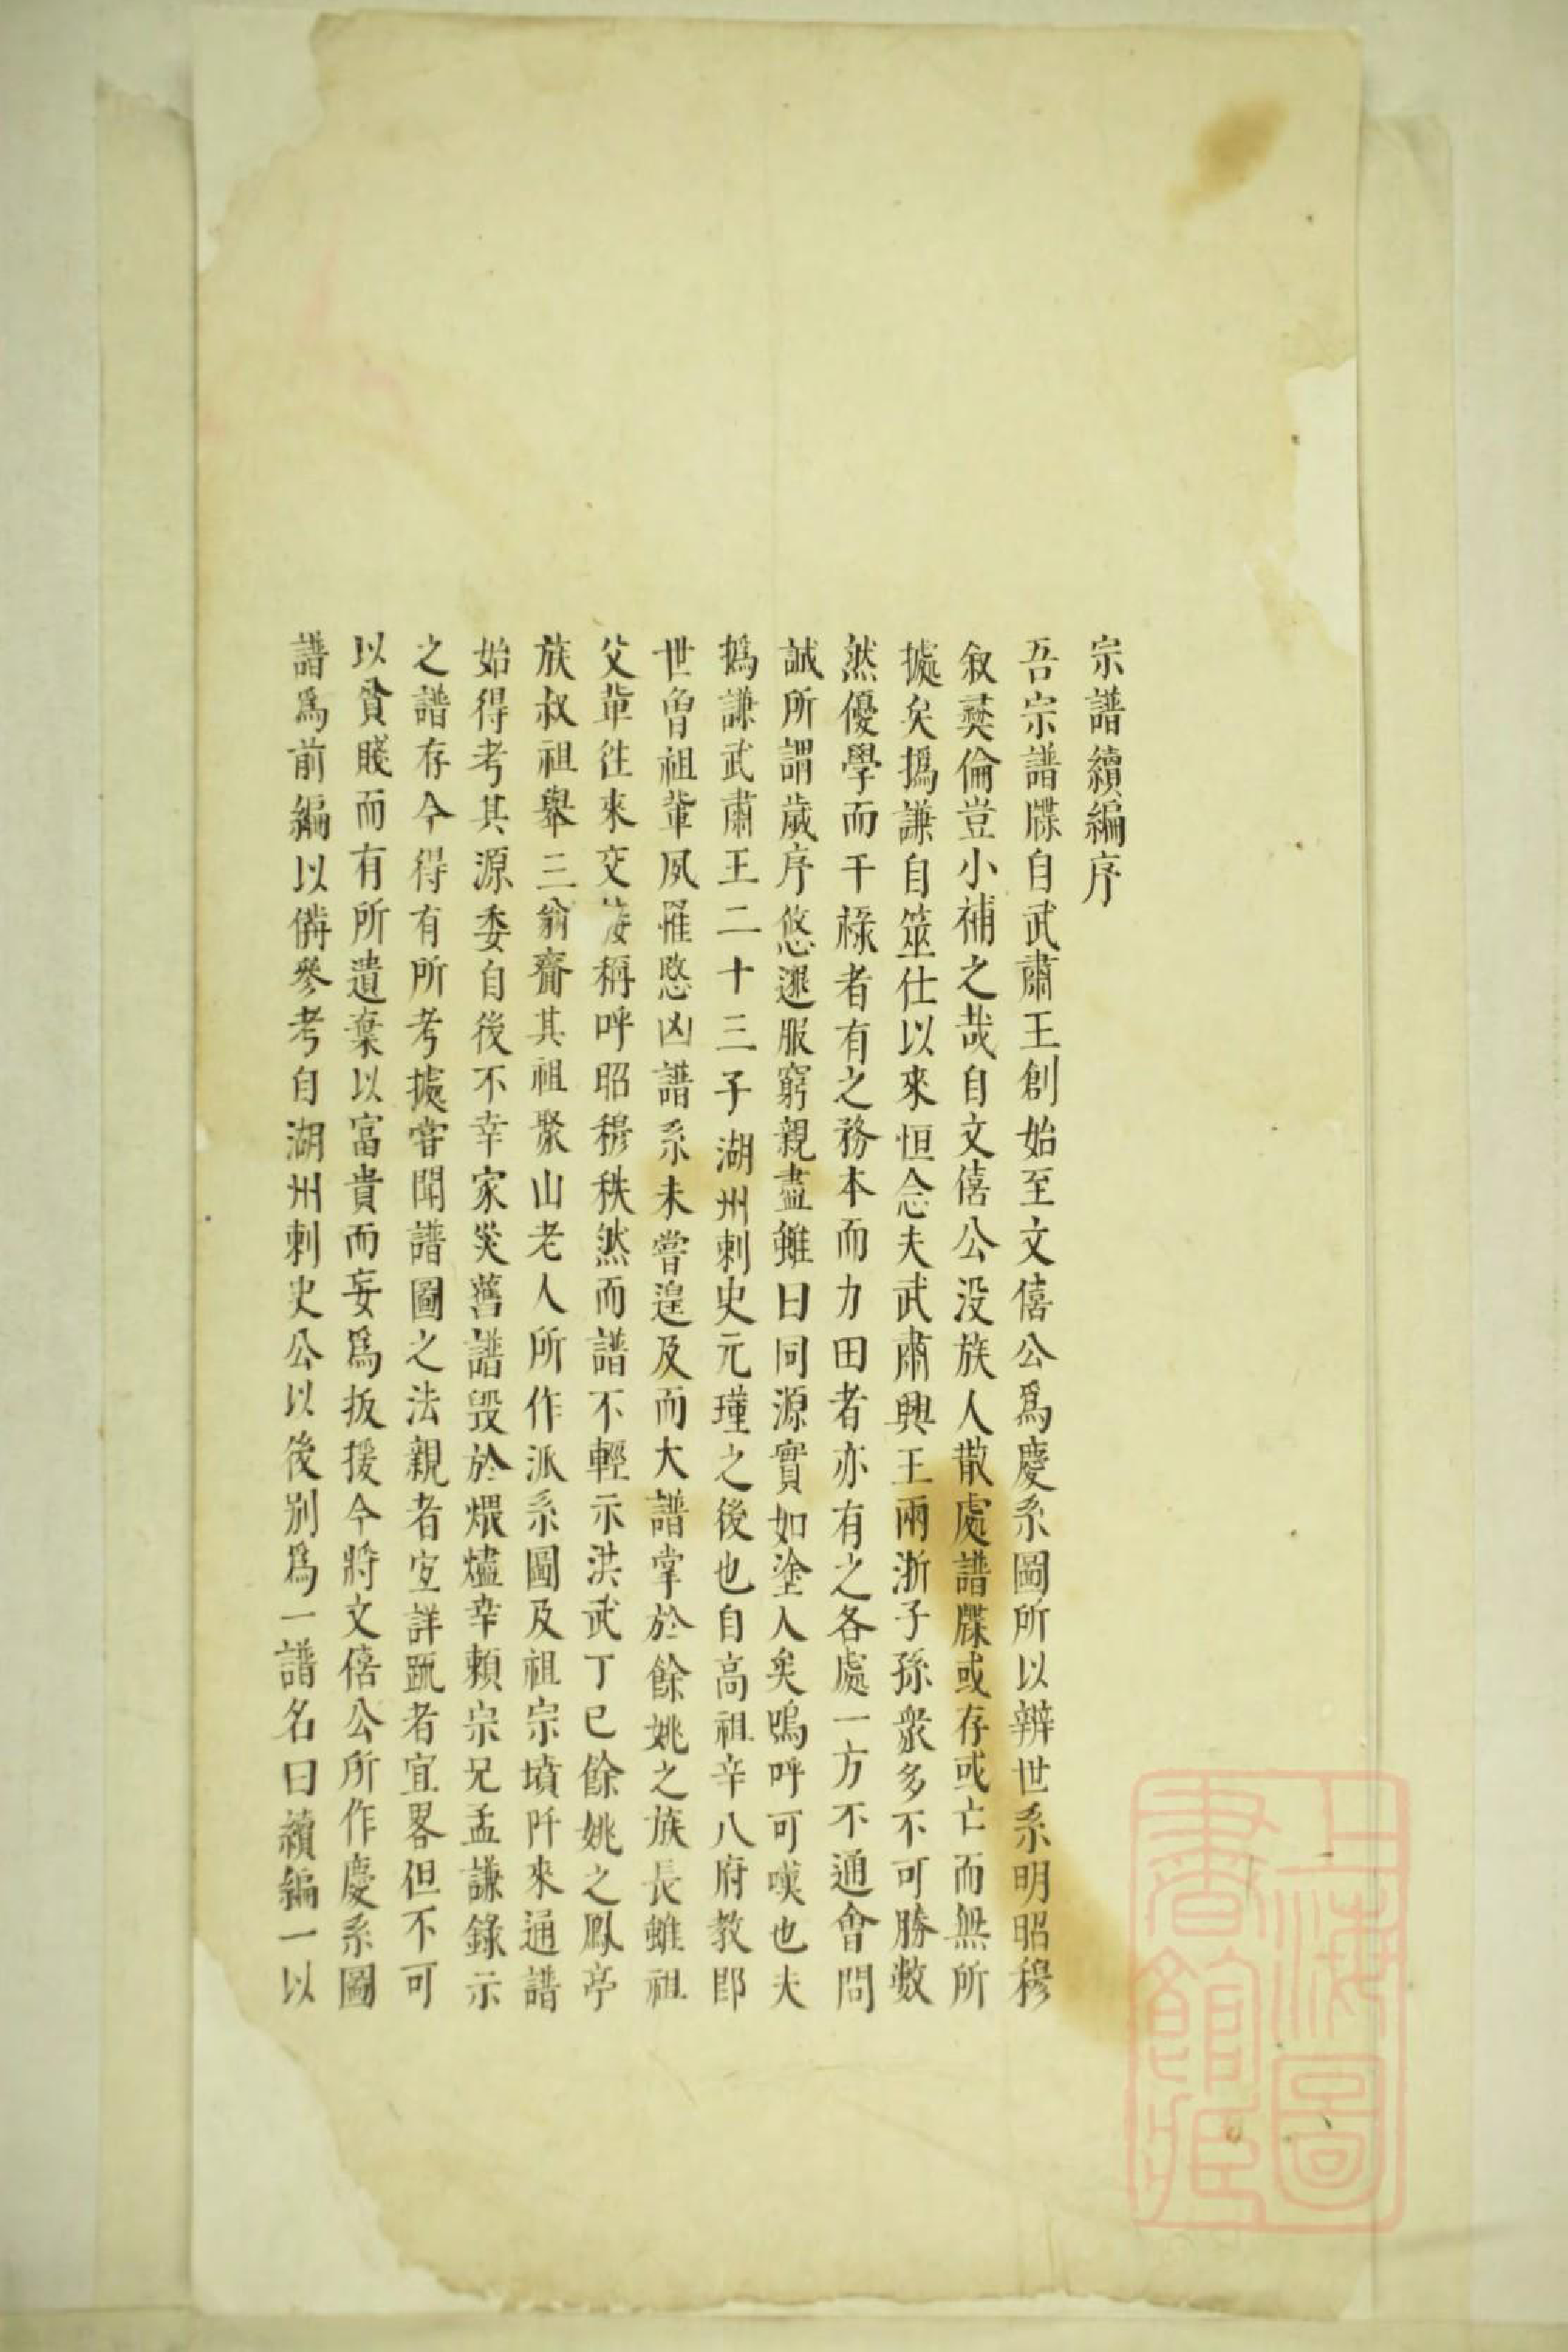 宗譜續編序
吾宗譜牒自武肅王創始至文僖公爲慶系圖所以辨世系明昭穆
敘彛倫豈小補之哉自文僖公没族人散處譜牒或存或亡而無所
據矣撝謙自筮仕以來恒念夫武肅興王兩浙子孫衆多不可勝數
然優學而干祿者有之務本而力田者亦有之各處一方不通會問
誠所謂歲序悠遷服窮親盡雖曰同源實如塗人矣嗚呼可嘆也夫
撝謙武肅王二十三子湖州刺史元瓘之後也自高祖辛八府教即
世曾祖輩夙罹愍凶譜系未嘗遑及而大譜掌於餘姚之族長雖祖
父輩往來交接稱呼昭穆秩然而譜不輕示洪武丁巳餘姚之鳳亭
族叔祖舉三翁齎其祖聚山老人所作派系圖及祖宗墳阡來通譜
始得考其源委自後不幸家災舊譜毀於煨燼幸賴宗兄孟謙錄示
之譜存今得有所考據嘗聞譜圖之法親者宜詳踈者宜畧但不可
以貧賤而有所遺棄以富貴而妄爲扳援今將文僖公所作慶系圖
譜爲前編以備參考自湖州刺史公以後别爲一譜名曰續編一以
上海圖
書館藏